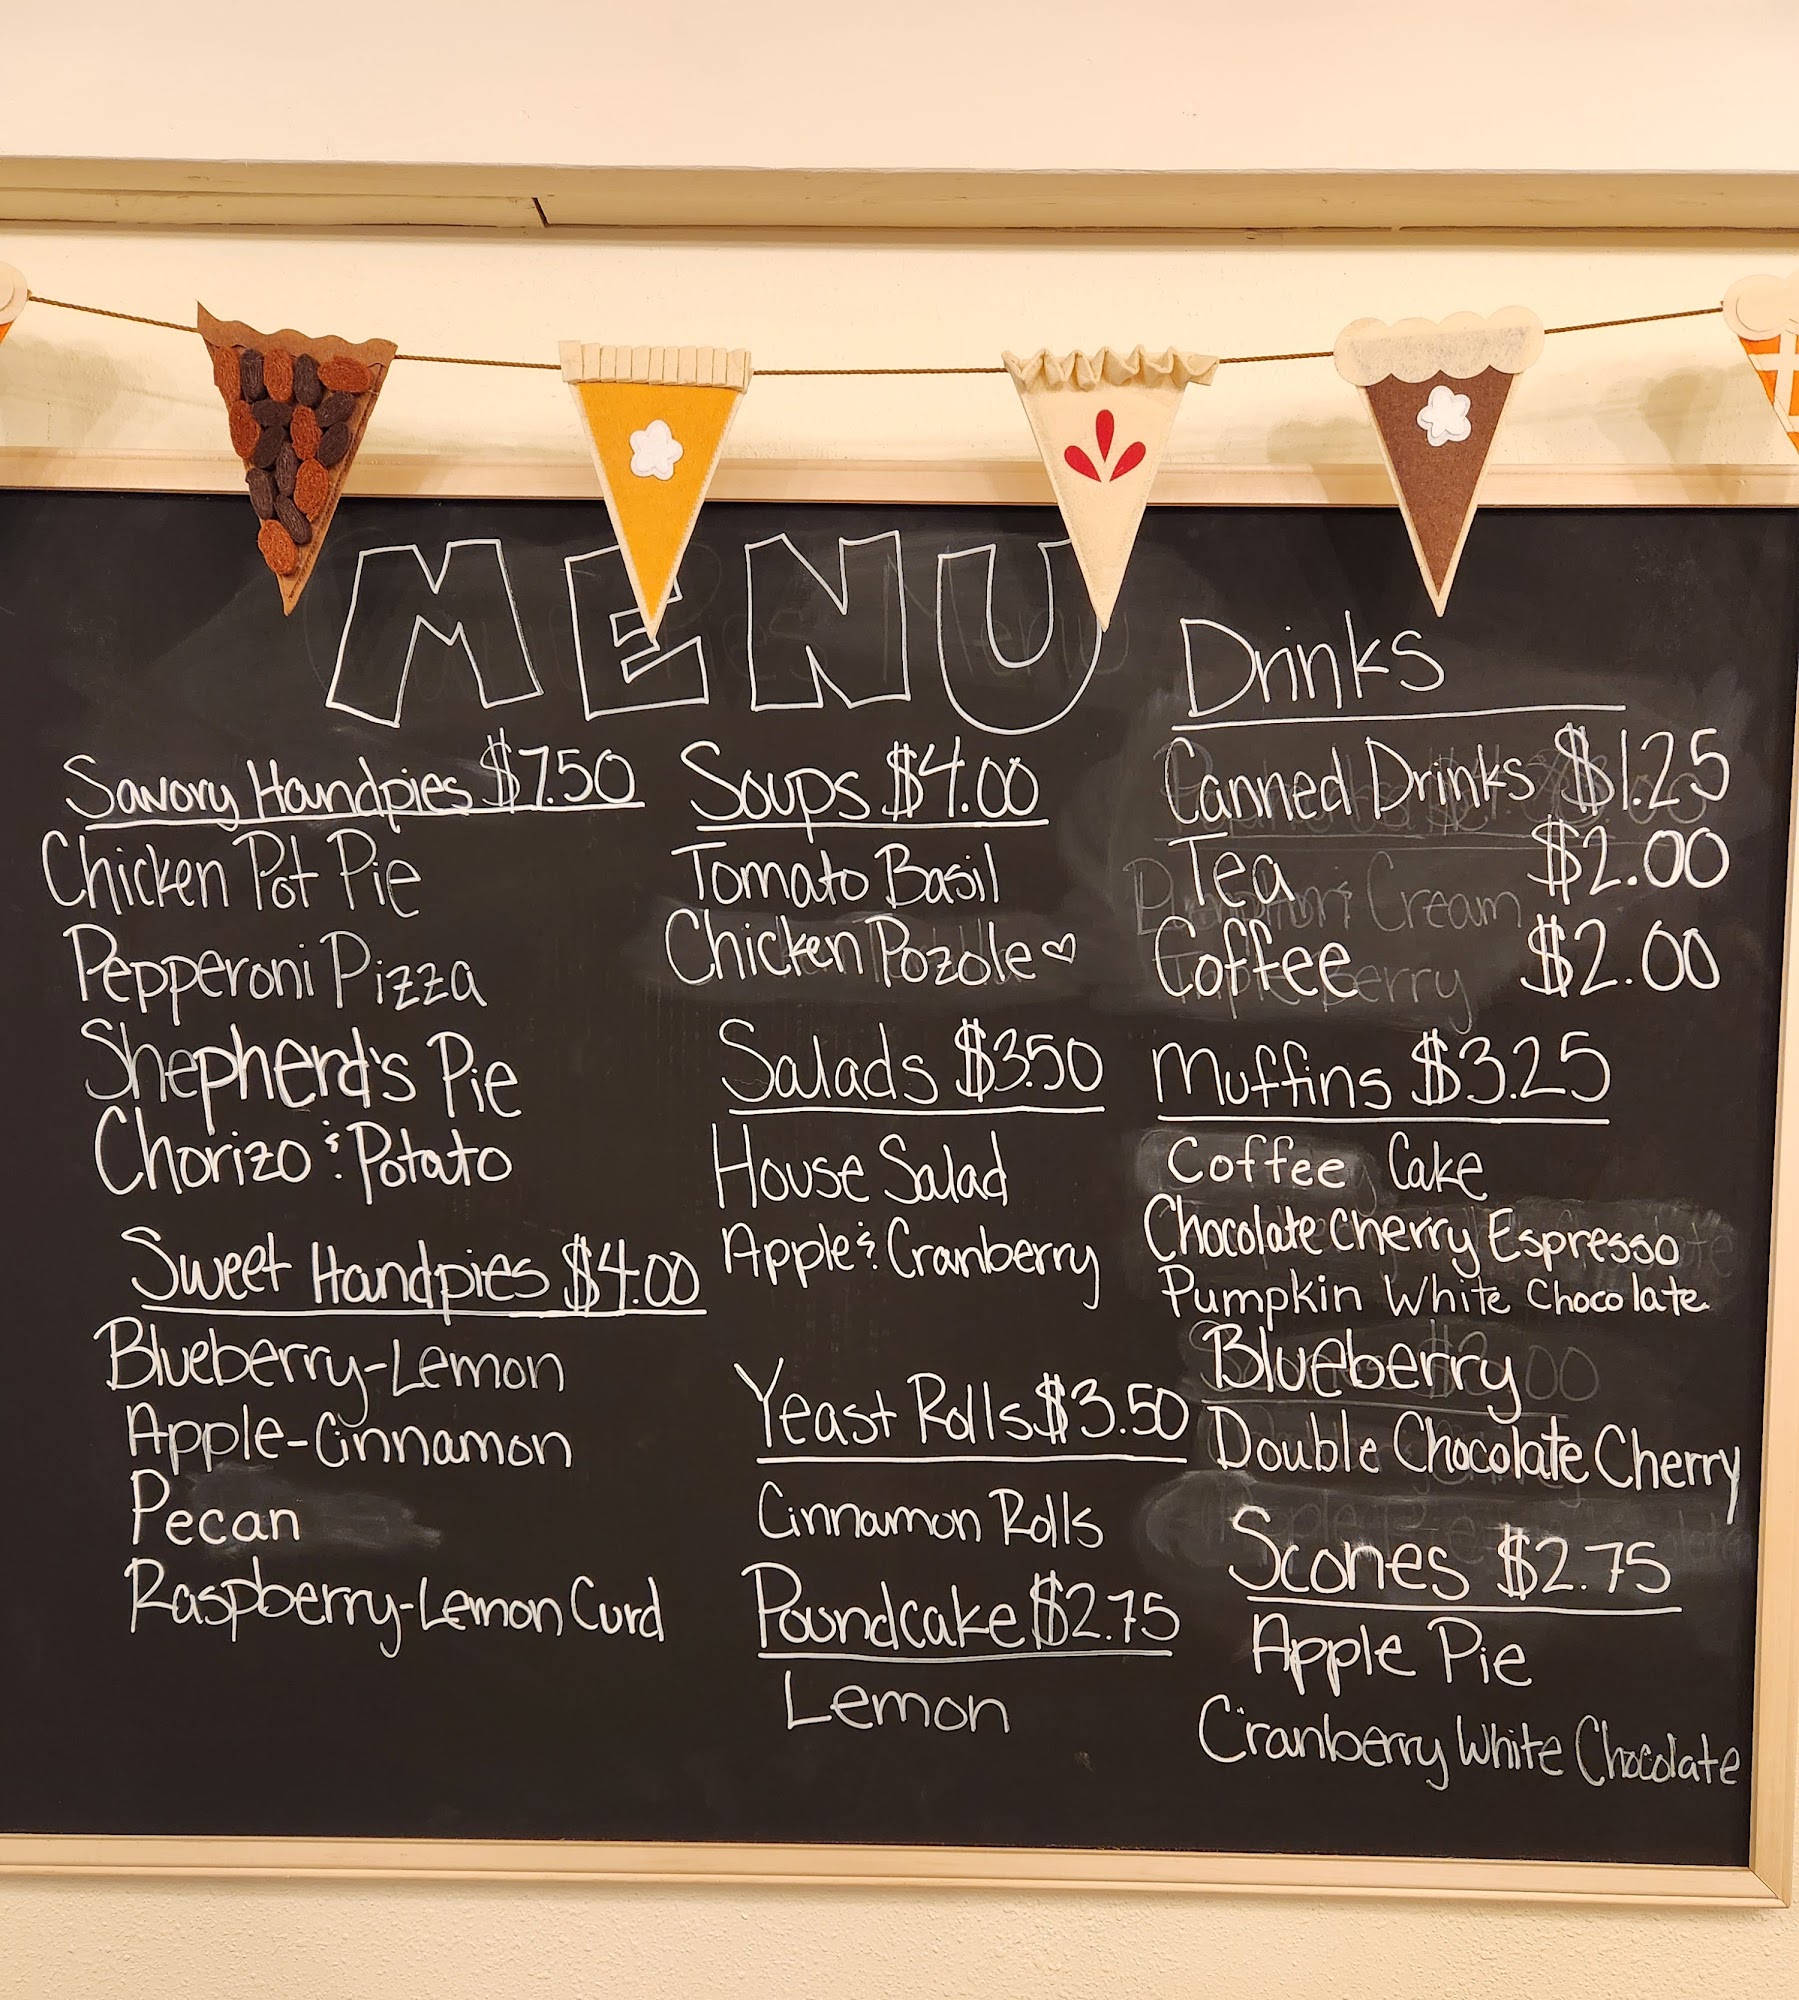 MENU
Savory Handpies $7.50
Chicken Pot Pie
Pepperoni Pizza
Shepherd's Pie
Chorizo & Potato
Sweet Handpies $4.00
Blueberry-Lemon
Apple-Cinnamon
Pecan
Raspberry-Lemon Curd
Soups $4.00
Tomato Basil
Chicken Pozole ♡
Salads $3.50
House Salad
Apple & Cranberry
Yeast Rolls $3.50
Cinnamon Rolls
Poundcake $2.75
Lemon
Drinks
Canned Drinks $1.25
Tea $2.00
Coffee $2.00
Muffins $3.25
Coffee Cake
Chocolate Cherry Espresso
Pumpkin White Chocolate
Blueberry
Double Chocolate Cherry
Scones $2.75
Apple Pie
Cranberry White Chocolate